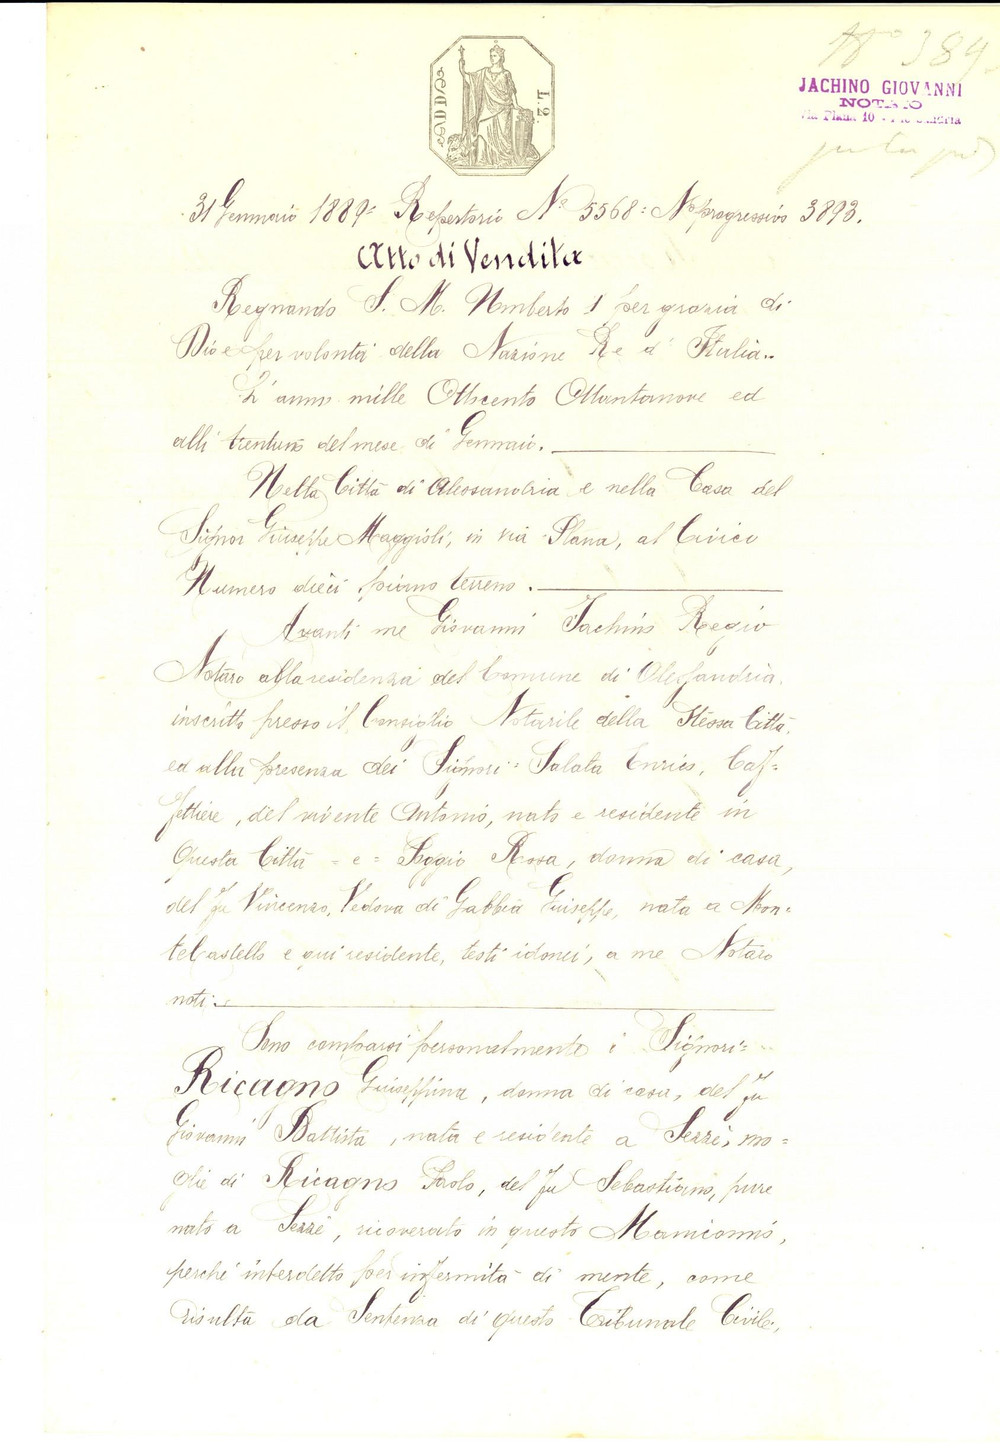 L. 2.
N° 389
JACHINO GIOVANNI
NOTAIO
Via Plana 10
31 Gennaio 1889 = Repertorio N° 5568 = N° progressivo 3893.
Atto di Vendita
Regnando S. M. Umberto 1 per grazia di
Dio e per volontà della Nazione Re d' Italia..
L' anno mille Ottocento Ottantanove ed
alli trentuno del mese di Gennaio.
Nella Città di Alessandria e nella Casa del
Signor Giuseppe Maggioli, in via Plana, al Civico
Numero dieci piano terreno.
Avanti me Giovanni Jachino Regio
Notaro alla residenza del Comune di Alessandria
inscritto presso il Consiglio Notarile della stessa Città,
ed alla presenza dei Signori = Salata Enrico, Caf=
fettiere, del vivente Antonio, nato e residente in
questa Città = e = Poggio Rosa, donna di casa,
del fu Vincenzo, Vedova di Gabbia Giuseppe, nata a Mon=
tecastello e qui residente, testi idonei, a me Notaro
noti.
Sono comparsi personalmente i Signori=
Ricagno Giuseppina, donna di casa, del fu
Giovanni Battista, nata e residente a Sezzè, mo=
glie di Ricagno Paolo, del fu Sebastiano, pure
nato a Sezzè, ricoverato in questo Manicomio,
perchè interdetto per infermità di mente, come
risulta da Sentenza di questo Tribunale Civile,